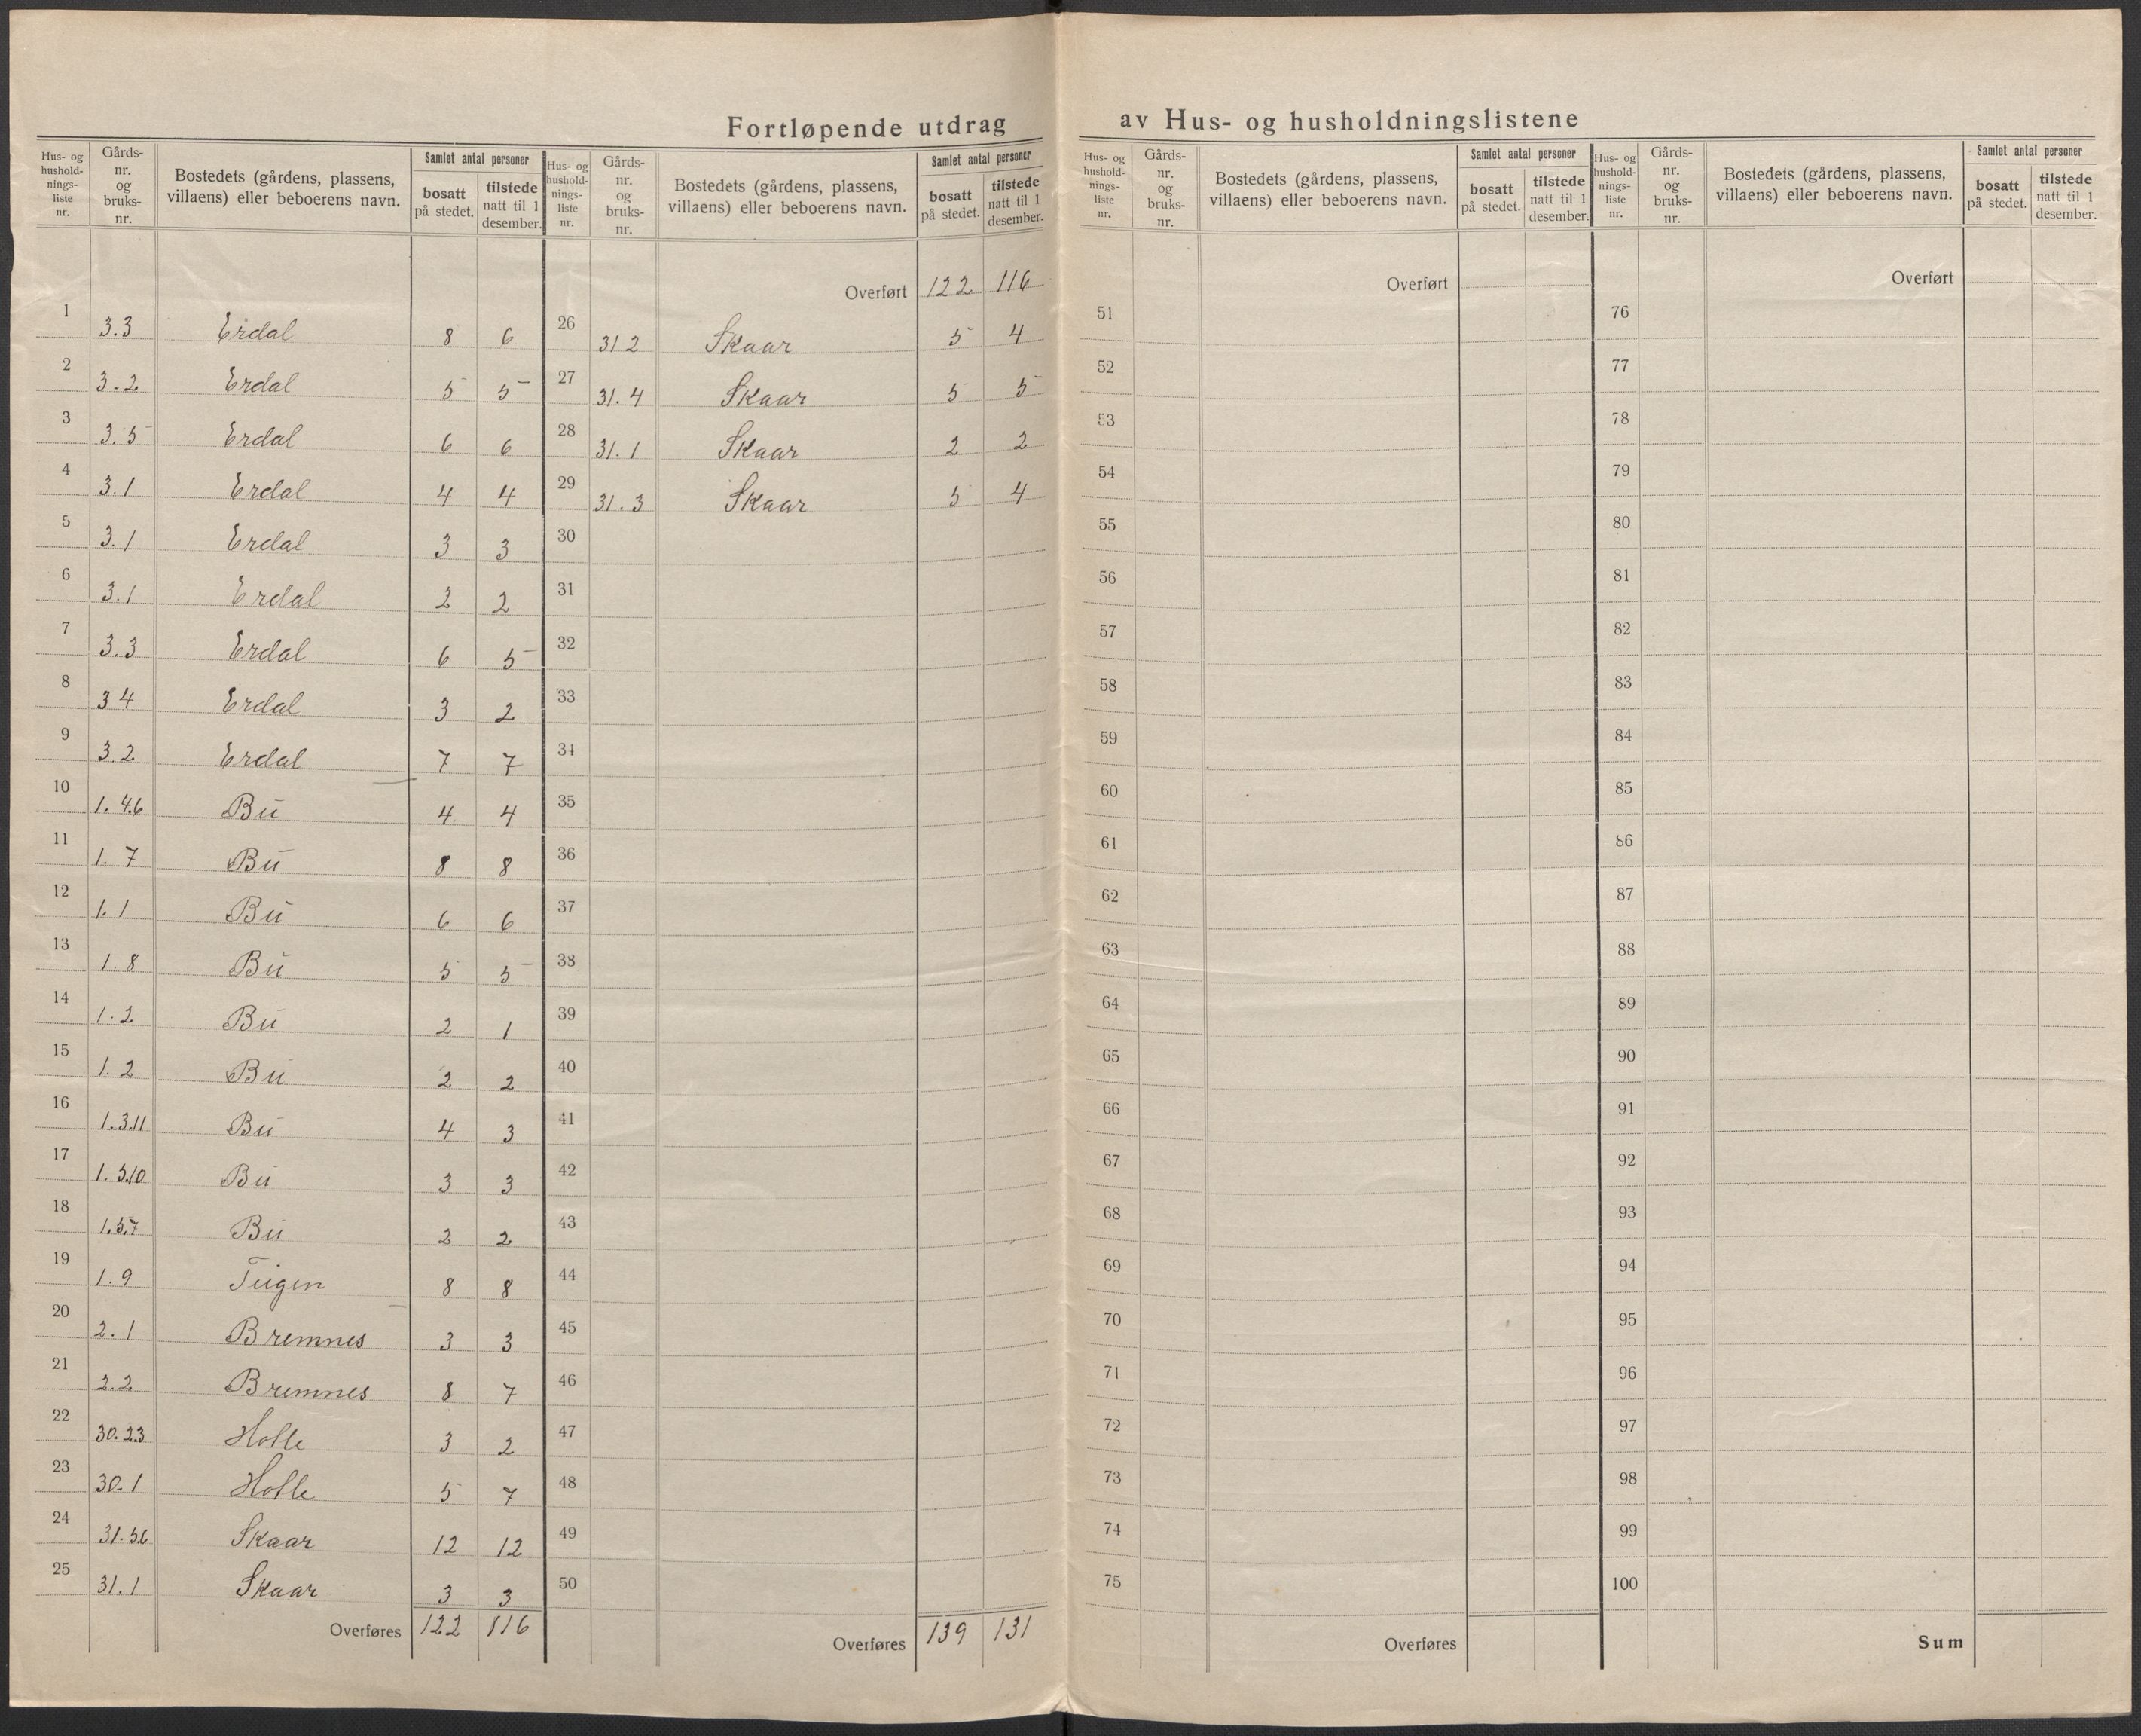 Fortløpende utdrag av Hus- og husholdningslistene
Hus- og hushold-nings-liste nr. Gårds-nr. og bruks-nr. Bostedets (gårdens, plassens, villaens) eller beboerens navn. Samlet antal personer bosatt på stedet. tilstede natt til 1 desember.
1 3.3 Erdal 8 6
2 3.2 Erdal 5 5
3 3.5 Erdal 6 6
4 3.1 Erdal 4 4
5 3.1 Erdal 3 3
6 3.1 Erdal 2 2
7 3.3 Erdal 6 5
8 3 4 Erdal 3 2
9 3 2 Erdal 7 7
10 1. 4.6 Bu 4 4
11 1. 7 Bu 8 8
12 1.1 Bu 6 6
13 1.8 Bu 5 5
14 1.2 Bu 2 1
15 1.2 Bu 2 2
16 1.3.11 Bu 4 3
17 1.5.10 Bu 3 3
18 1.5.7 Bu 2 2
19 1.9 Teigen 8 8
20 2.1 Bremnes 3 3
21 2.2 Bremnes 8 7
22 30.2.3 Holle 3 2
23 30.1 Holle 5 7
24 31.5.6 Skaar 12 12
25 31.1 Skaar 3 3
Overføres 122 116
Hus- og hushold-nings-liste nr. Gårds-nr. og bruks-nr. Bostedets (gårdens, plassens, villaens) eller beboerens navn. Samlet antal personer bosatt på stedet. tilstede natt til 1 desember.
Overført 122 116
26 31 2 Skaar 5 4
27 31.4 Skaar 5 5
28 31.1 Skaar 2 2
29 31.3 Skaar 5 4
30
31
32
33
34
35
36
37
38
39
40
41
42
43
44
45
46
47
48
49
50
Overføres 139 131
Hus- og hushold-nings-liste nr. Gårds-nr. og bruks-nr. Bostedets (gårdens, plassens, villaens) eller beboerens navn. Samlet antal personer bosatt på stedet. tilstede natt til 1 desember.
Overført
51
52
53
54
55
56
57
58
59
60
61
62
63
64
65
66
67
68
69
70
71
72
73
74
75
Overføres
Hus- og hushold-nings-liste nr. Gårds-nr. og bruks-nr. Bostedets (gårdens, plassens, villaens) eller beboerens navn. Samlet antal personer bosatt på stedet. tilstede natt til 1 desember.
Overført
76
77
78
79
80
81
82
83
84
85
86
87
88
89
90
91
92
93
94
95
96
97
98
99
100
Sum